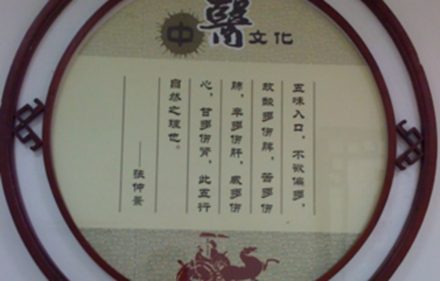 中醫文化
五味入口,不欲偏多,
故酸多伤脾,苦多伤
肺,辛多伤肝,咸多伤
心,甘多伤肾,此五行
自然之理也。
——张仲景